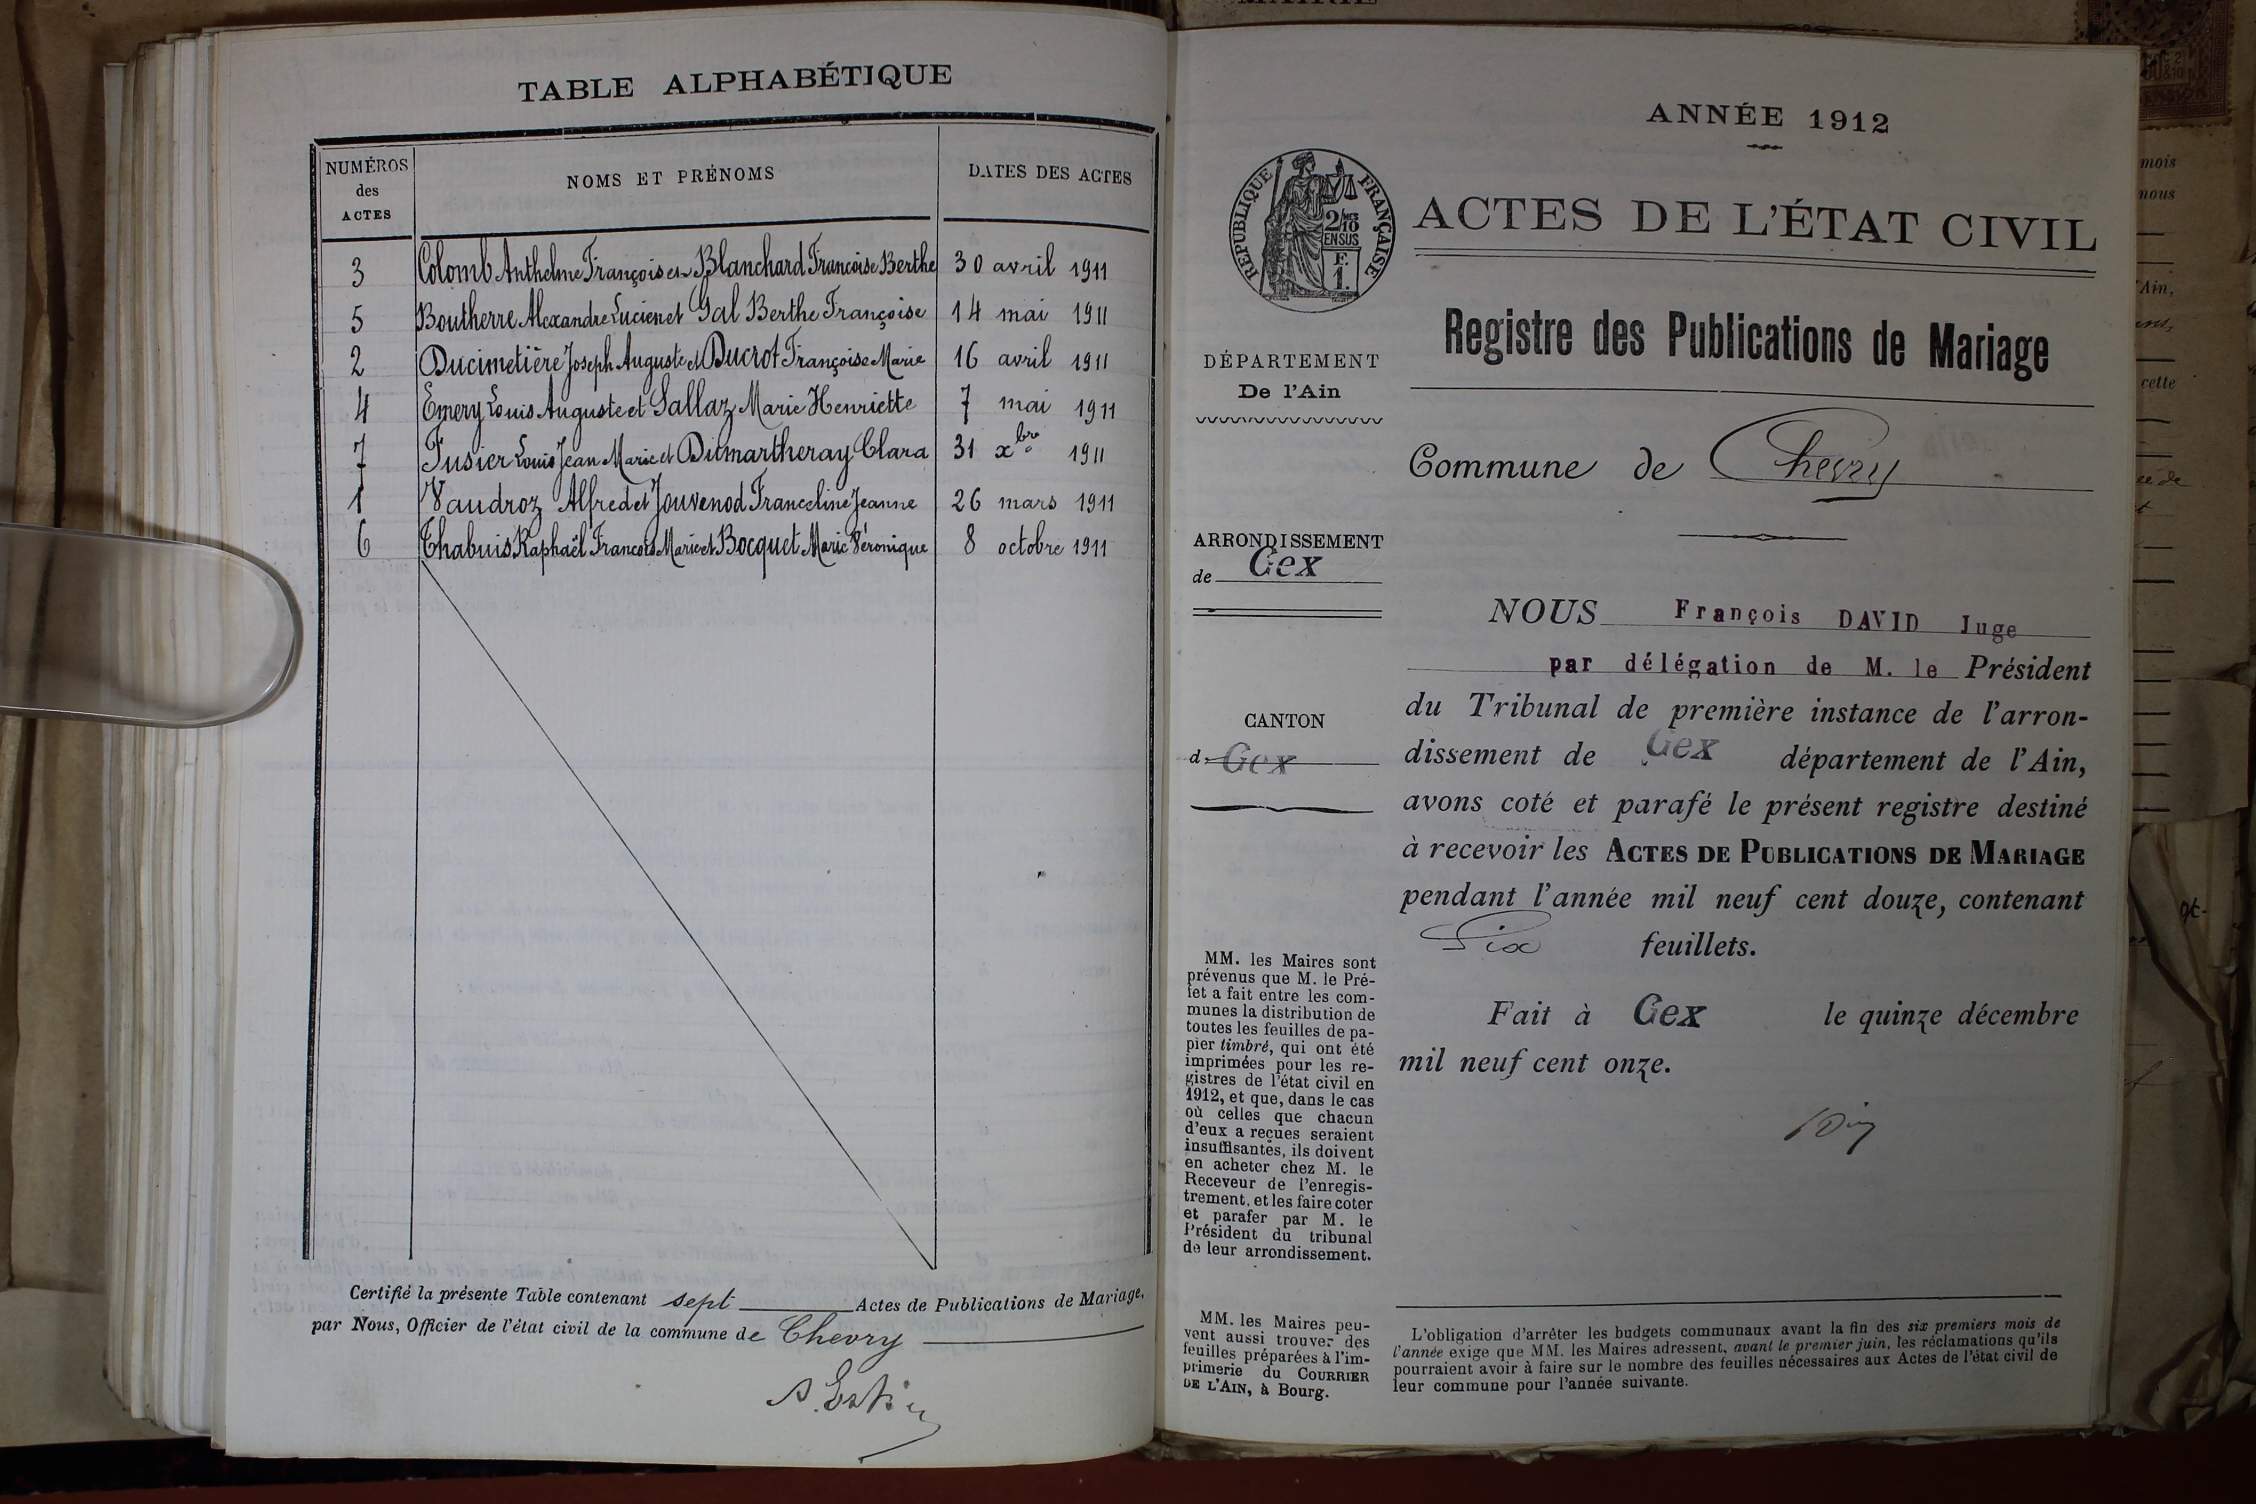 TABLE ALPHABÉTIQUE
NUMÉROS des ACTES | NOMS ET PRÉNOMS | DATES DES ACTES
3 Colomb Anthelme François et Blanchard Francoise Berthe 30 avril 1911
5 Boutherre Alexandre Lucien et Gal Berthe Françoise 14 mai 1911
2 Ducimetière Joseph Auguste et Ducrot Françoise Marie 16 avril 1911
4 Emery Louis Auguste et Sallaz Marie Henriette 7 mai 1911
7 Fusier Louis Jean Marie et Dumartheray Clara 31 xbre 1911
1 Vaudroz Alfred et Jouvenod Franceline Jeanne 26 mars 1911
6 Thabuis Raphaël Francois Marie et Bocquet Marie Véronique 8 octobre 1911
Certifié la présente Table contenant sept Actes de Publications de Mariage,
par Nous, Officier de l'état civil de la commune de Chevry
MAIRIE
ANNÉE 1912
RÉPUBLIQUE FRANÇAISE
2/10
EN SUS
F.
1.
ACTES DE L'ÉTAT CIVIL
Registre des Publications de Mariage
DÉPARTEMENT
De l'Ain
Commune de Chevry
ARRONDISSEMENT
de Gex
CANTON
d. Gex
NOUS François DAVID Juge
par délégation de M. le Président
du Tribunal de première instance de l'arron-
dissement de Gex département de l'Ain,
avons coté et parafé le présent registre destiné
à recevoir les ACTES DE PUBLICATIONS DE MARIAGE
pendant l'année mil neuf cent douze, contenant
Six feuillets.
Fait à Gex le quinze décembre
mil neuf cent onze.
MM. les Maires sont
prévenus que M. le Pré-
fet a fait entre les com-
munes la distribution de
toutes les feuilles de pa-
pier timbré, qui ont été
imprimées pour les re-
gistres de l'état civil en
1912, et que, dans le cas
où celles que chacun
d'eux a reçues seraient
insuffisantes, ils doivent
en acheter chez M. le
Receveur de l'enregis-
trement, et les faire coter
et parafer par M. le
Président du tribunal
de leur arrondissement.
MM. les Maires peu-
vent aussi trouver des
feuilles préparées à l'im-
primerie du COURRIER
DE L'AIN, à Bourg.
L'obligation d'arrêter les budgets communaux avant la fin des six premiers mois de
l'année exige que MM. les Maires adressent, avant le premier juin, les réclamations qu'ils
pourraient avoir à faire sur le nombre des feuilles nécessaires aux Actes de l'état civil de
leur commune pour l'année suivante.
mois
nous
cette